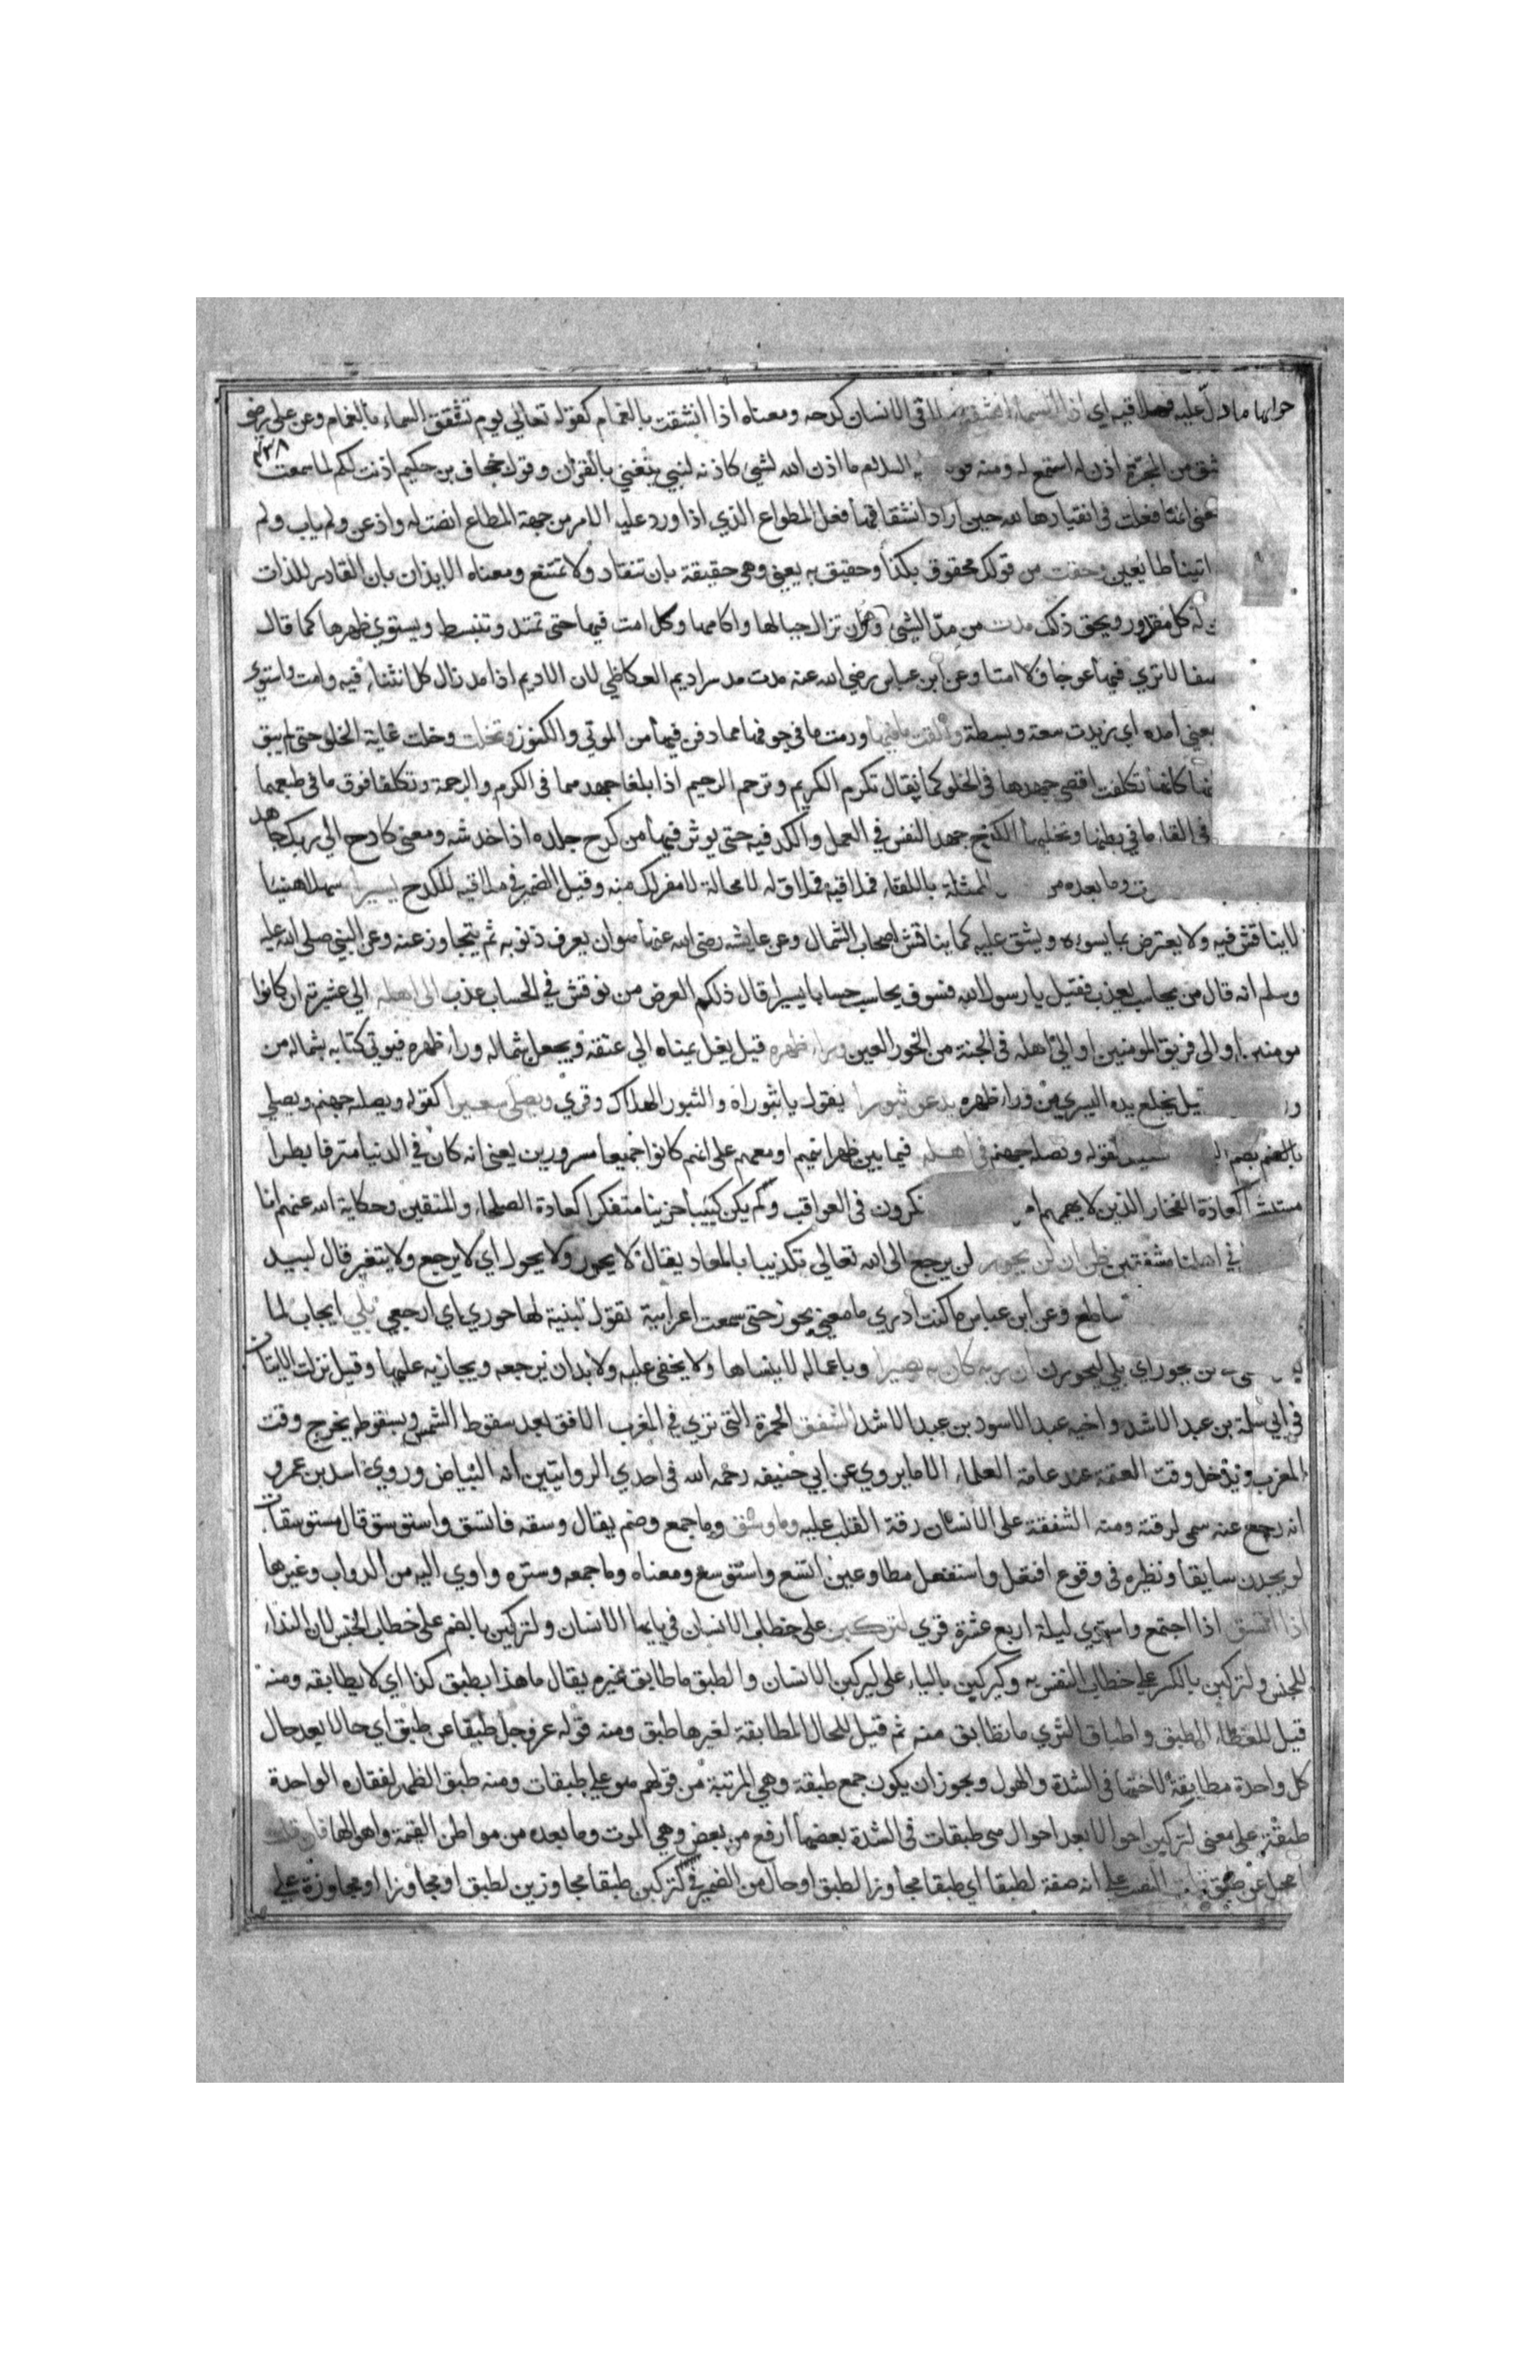 جوابها ما دل عليه فملاقيه اي اذا السماء انشقت لاقى الانسان كدحه ومعناه اذا انشقت بالغمام كقوله تعالى يوم تشقق السماء بالغمام وعن على رضى
شق من المجرة اذن له استمع له ومنه قو السلام ما اذن الله لشيئ كاذنه لنبي يتغني بالقران وقول جحاف بن حكيم اذنت لكم لما سمعت
عنى انها فعلت فى انقيادها لله حين اراد انشقاقها فعل المطواع الذي اذا ورد عليه الامر من جهة المطاع انصت له واذعن ولم ياب ولم
اتينا طايعين وحقت من قولك محقوق بكذا وحقيق به يعني وهى حقيقة بان تنقاد ولا تمتنع ومعناه الايذان بان القادر للذات
له كل مقدور ويحق ذلك مدت من مد الشيئ وهو ان تزال جبالها واكامها وكل امت فيها حتى تمتد وتنبسط ويستوي ظهرها كما قال
صفصفا لا تري فيها عوجا ولا امتا وعن ابن عباس رضي الله عنه مدت مد سر اديم العكاظي لان الاديم اذا مد زال كل انثناء فيه وامت واستوى
بمعني امده اي زيدت سعة وبسطة والقت ما فيها ورمت ما في جوفها مما دفن فيها من الموتي والكنوز وتخلت وخلت غاية الخلو حتى لم يبق
كانها تكلفت اقصى جهدها فى الخلو كما يقال تكرم الكريم وترحم الرحيم اذا بلغا جهدهما فى الكرم والرحمة وتكلفا فوق ما فى طبعهما
فى القاء ما في بطنها وتخليها الكدح جهد النفس في العمل والكد فيه حتى يوثر فيها من كدح جلده اذا خدشه ومعنى كادح الي ربك جاهد
وما بعده من الممثلة باللقاء فملاقيه فملاق له لا محالة لا مفر لك منه وقيل الضمير في ملاقيه للكدح يسيرا سهلا هينا
لا يناقش فيه ولا يعترض بما يسوءه ويشق عليه كما يناقش اصحاب الشمال وعن عايشه رضى الله عنها هو ان يعرف ذنوبه ثم يتجاوز عنه وعن النبي صلى الله عليه
وسلم انه قال من يحاسب يعذب فقيل يا رسول الله فسوف يحاسب حسابا يسيرا قال ذلكم العرض من نوقش في الحساب عذب الى اهله الي عشيرته ان كانوا
مومنين او الى فريق المومنين او الى اهله فى الجنة من الحور العين وراء ظهره قيل يغل يمناه الي عنقه ويجعل شماله وراء ظهره فيوتي كتابه بشماله من
قيل يخلع يده اليسري من وراء ظهره يدعو ثبورا يقول يا ثبوراه والثبور الهلاك وقري ويصلى سعيرا كقوله وتصلية جهنم ويصلي
بالضم كقوله ونصله جهنم فى اهله فيما بين ظهرانيهم او معهم على انهم كانوا جميعا مسرورين يعنى انه كان في الدنيا مترفا بطرا
كعادة الفجار الذين لا يهمهم امر يفكرون فى العواقب ولم يكن كئيبا حزينا متفكرا كعادة الصلحاء والمتقين وحكاية الله عنهم انا
في اهلنا مشفقين ظن ان لن يحور لن يرجع الى الله تعالي تكذيبا بالمعاد يقال لا يحور ولا يحول اي لا يرجع ولا يتغير قال لبيد
ساطع وعن ابن عباس ما كنت ادري ما معني يحور حتى سمعت اعرابية تقول لبنية لها حوري اي ارجعي بلي ايجاب لما
لن يحور اي بلي ليحورن ان ربه كان به بصيرا وباعماله لا ينساها ولا يخفى عليه ولا بد ان يرجعه ويجازيه عليها وقيل نزلت الايتان
فى ابي سلمة بن عبد الاشد واخيه عبد الاسود بن عبد الاشد الشفق الحمرة التى تري في المغرب الافق بعد سقوط الشمس وبسقوطه يخرج وقت
المغرب ويدخل وقت العتمة عند عامة العلماء الا ما يروي عن ابي حنيفه رحمه الله فى احدي الروايتين انه البياض وروي اسد بن عمرو
انه رجع عنه سمى لرقته ومنه الشفقة على الانسان رقة القلب عليه وما وسق وما جمع وضم يقال وسقه فاتسق واستوسق قال مستوسقات
لو يجدن سايقا ونظيره فى وقوع افتعل واستفعل مطاوعين اتسع واستوسع ومعناه وما جمعه وستره واوي اليه من الدواب وغيرها
اذا اتسق اذا اجتمع واستوي ليلة اربع عشرة قري لتركبن على خطاب الانسان في يا ايها الانسان ولتركبن بالضم على خطاب الجنس لان النداء
للجنس ولتركبن بالكسر على خطاب النفس به وليركبن بالياء على ليركبن الانسان والطبق ما طابق غيره يقال ما هذا بطبق كذا اي لا يطابقه ومنه
قيل للغطاء الطبق واطباق الثري ما تطابق منه ثم قيل للحال المطابقة لغيرها طبق ومنه قوله عز وجل طبقا عن طبق اي حالا بعد حال
كل واحدة مطابقة لاختها فى الشدة والهول ويجوز ان يكون جمع طبقة وهي المرتبة من قولهم هو علي طبقات ومنه طبق الظهر لفقاره الواحدة
طبقة على معنى لتركبن احوالا بعد احوال هى طبقات فى الشدة بعضها ارفع من بعض وهي الموت وما بعده من مواطن القيمة واهوالها فان قلت
ما محل عن طبق قلت النصب على انه صفة لطبقا اي طبقا مجاوزا لطبق او حال من الضمير في لتركبن طبقا مجاوزين لطبق او مجاوزا او مجاوزة علي